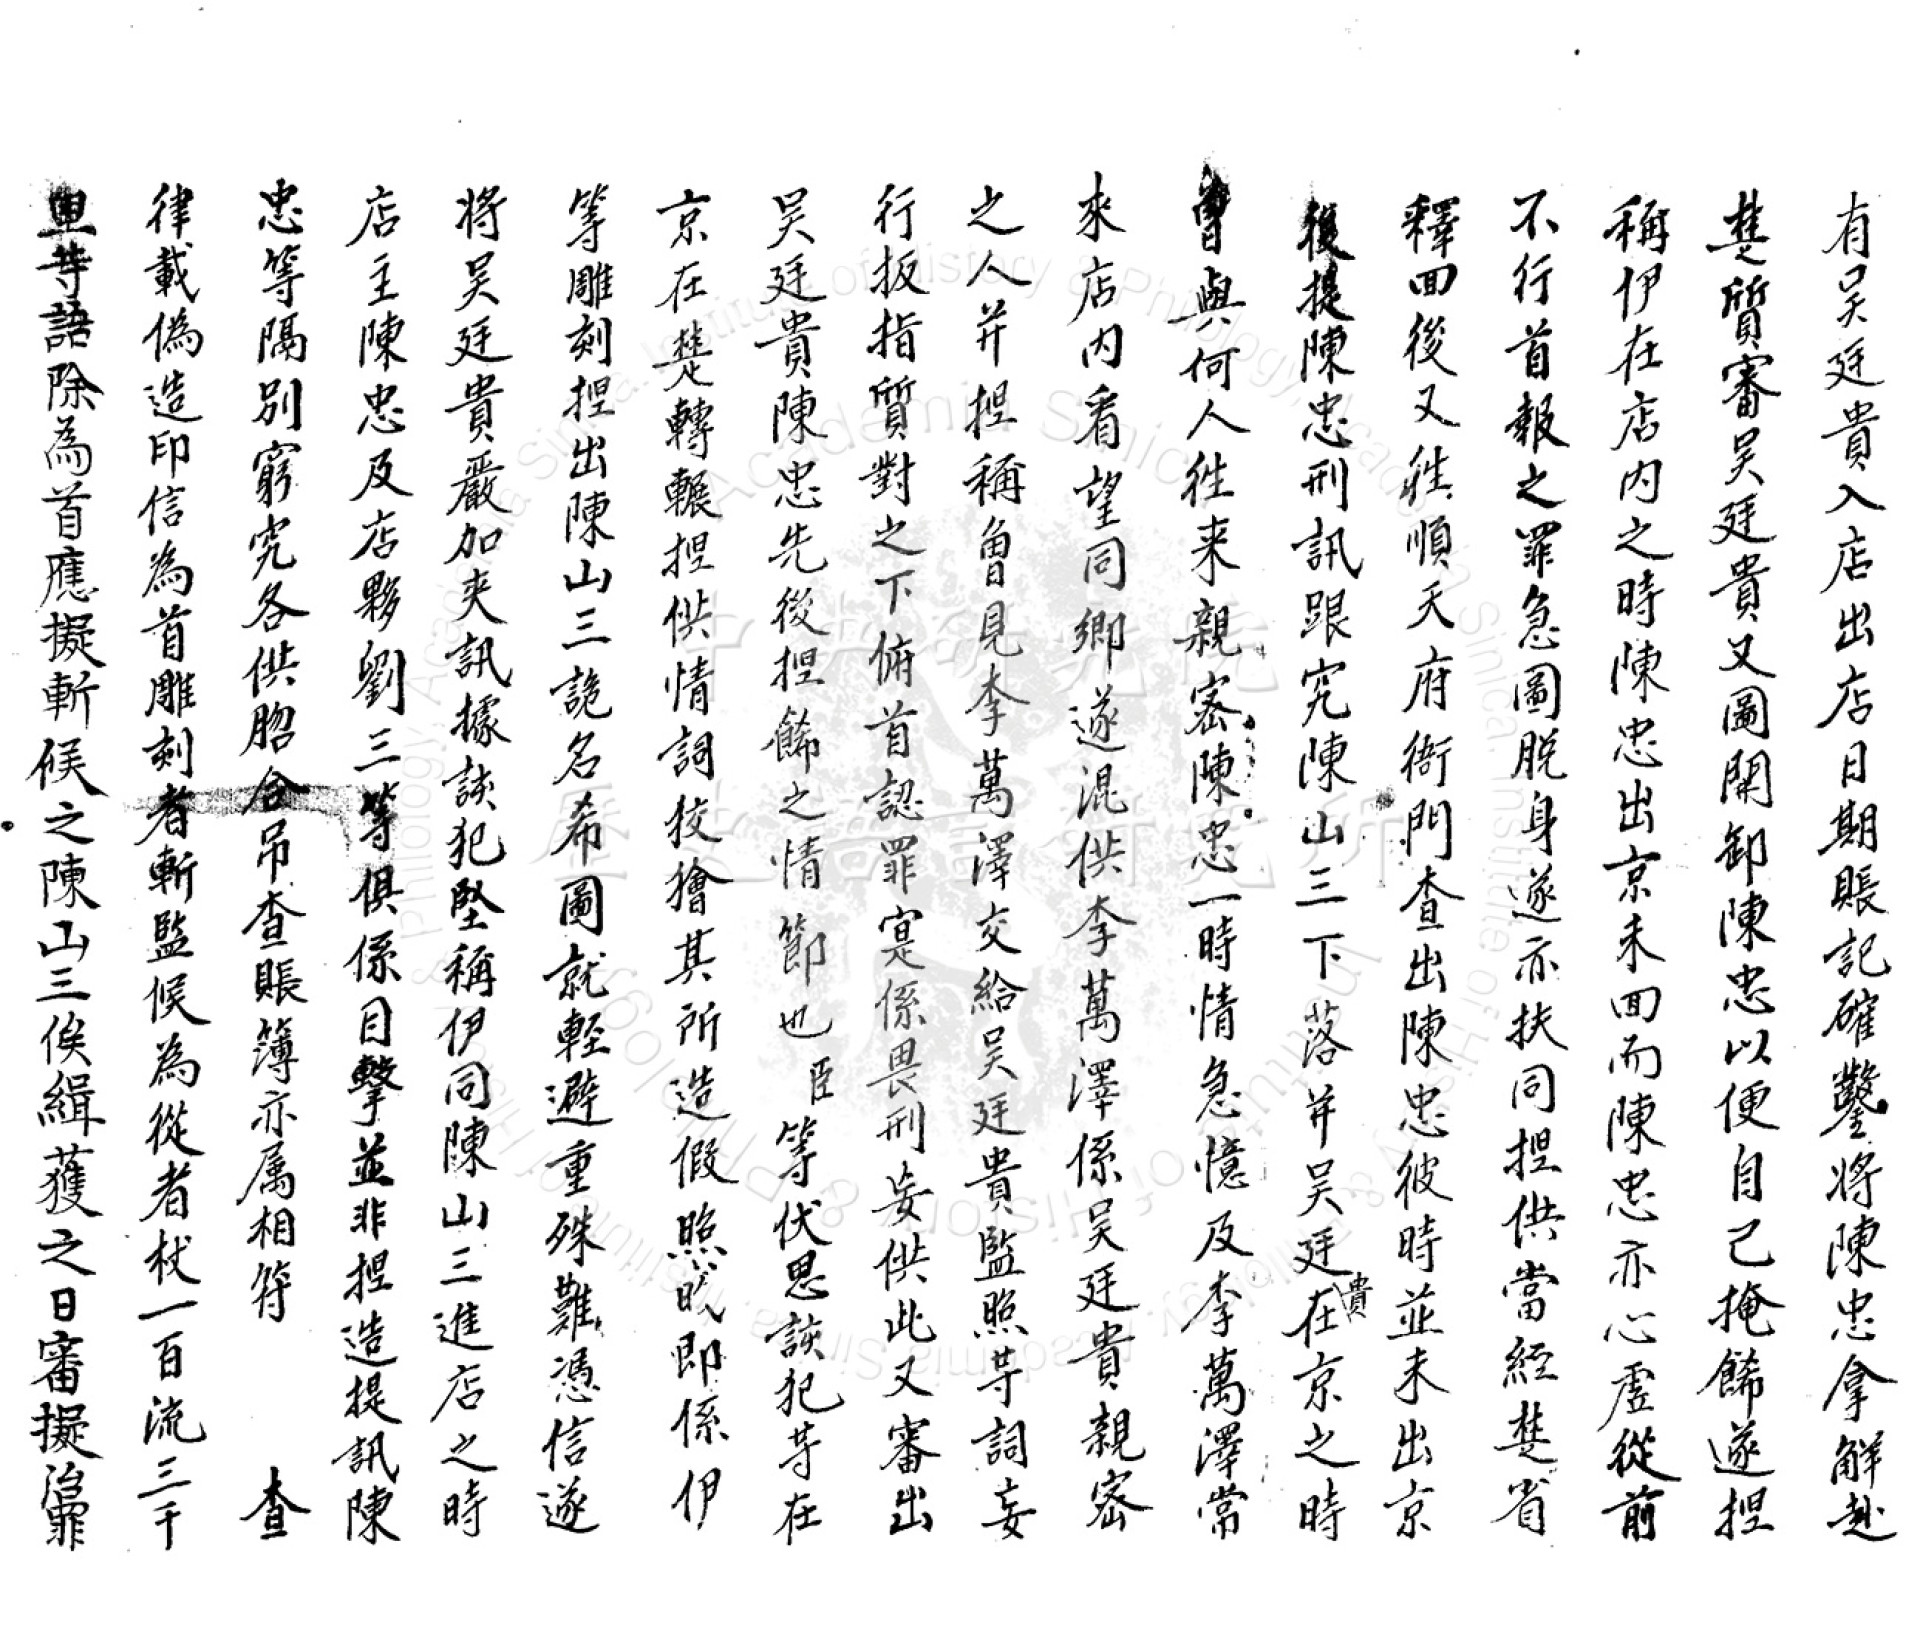 有吴廷貴入店出店日期賬記確鑿將陳忠拿解赴
楚質審吴廷貴又圖開卸陳忠以便自己掩餙遂捏
稱伊在店内之時陳忠出京未回而陳忠亦心虚從前
不行首報之罪急圖脱身遂亦扶同捏供當經楚省
釋回後又徃順天府衙門查出陳忠彼時並未出京
復提陳忠刑訊跟究陳山三下落并吴廷貴在京之時
曾與何人徃来親宻陳忠一時情急憶及李萬澤常
來店内看望同鄉遂混供李萬澤係吴廷貴親宻
之人并捏稱曾見李萬澤交給吴廷貴監照等詞妄
行扳指質對之下俯首認罪寔係畏刑妄供此又審出
吴廷貴陳忠先後捏餙之情節也臣等伏思該犯等在
京在楚轉輾捏供情詞狡獪其所造假照或即係伊
等雕刻捏出陳山三詭名希圖就輕避重殊難憑信遂
将吴廷貴嚴加夾訊據該犯堅稱伊同陳山三進店之時
店主陳忠及店夥劉三等俱係目擊並非捏造提訊陳
忠等隔别窮究各供脗合吊查賬簿亦属相符 查
律載偽造印信為首雕刻者斬監候為從者杖一百流三千
里等語除為首應擬斬候之陳山三俟緝獲之日審擬治罪
中央研究院
歷史語言研究所
Academia Sinica
Institute of History & Philology, Academia Sinica